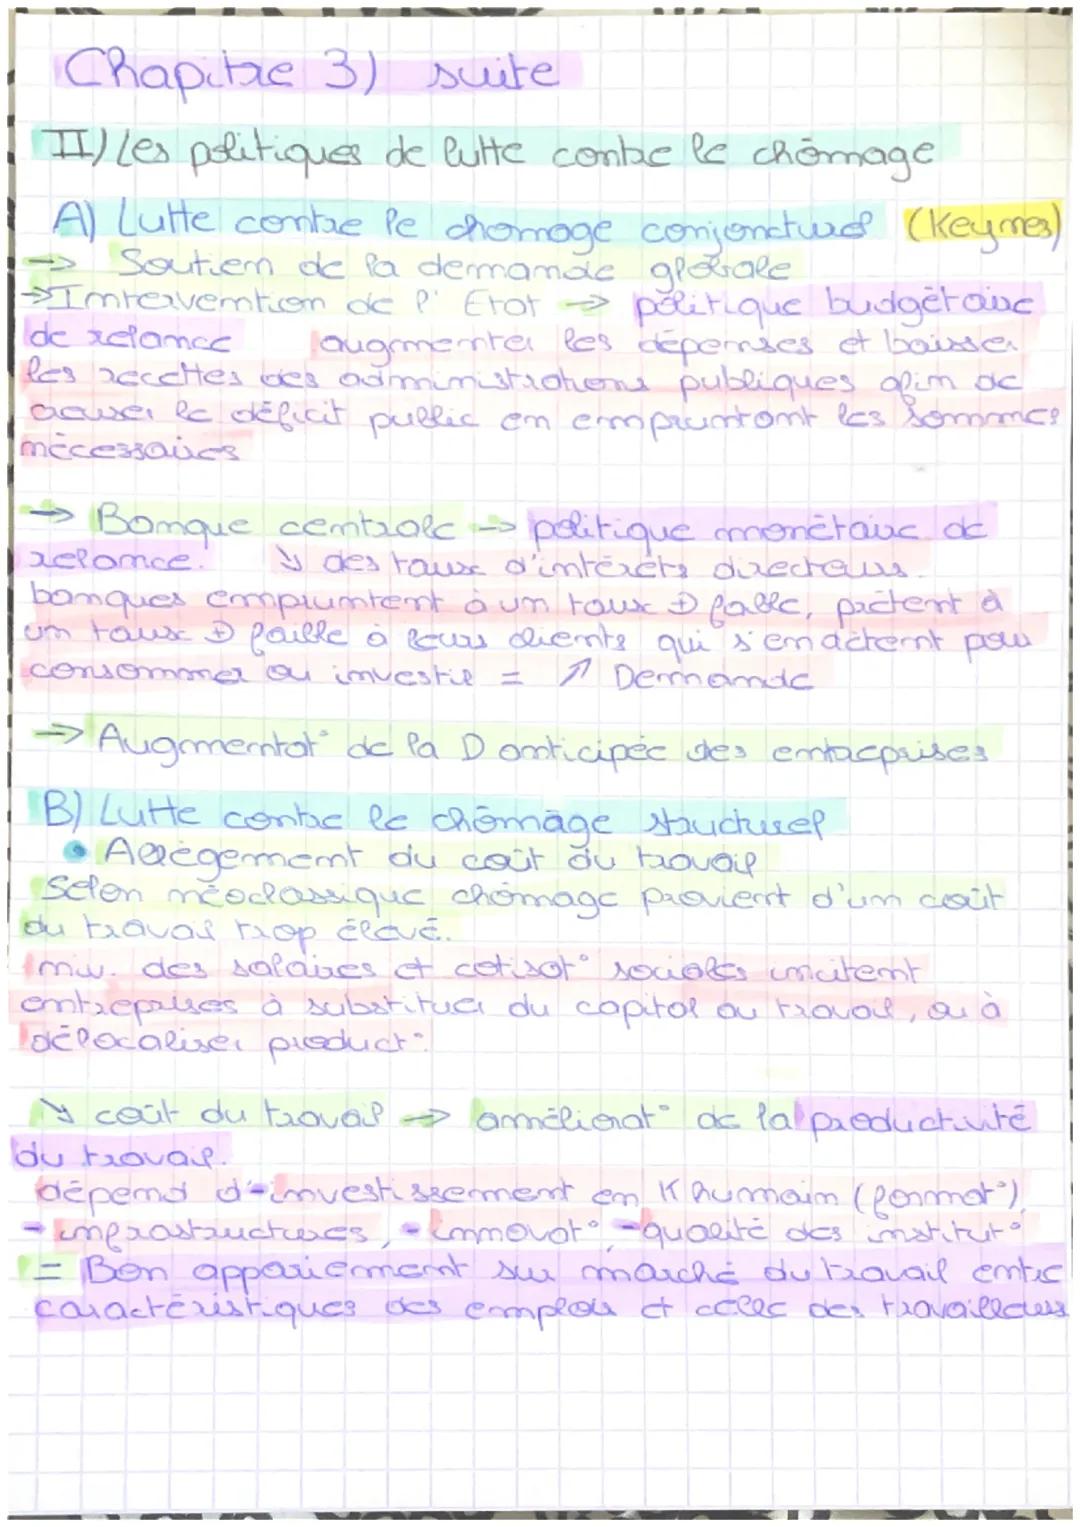 Chapitre 3) suite
II) Les politiques de lutte contre le chômage
A) Lutte contre le chomage conjoncturel (Keynes)
→ Soutien de la demande globale
→ Intervention de l'Etat → politique budgétaire
de relance augmenter les dépenses et baisser
les recettes des administrations publiques afin de
creuser le déficit public en empruntant les sommes
nécessaires
→ Banque centrale → politique monétaire de
relance. ↘ des taux d'intérêts directeurs.
banques empruntent à un taux ⊕ faible, prêtent à
un taux ⊕ faible à leurs clients qui s'endettent pour
consommer ou investir = ↗ Demande
→ Augmentat° de la D anticipée des entreprises
B) Lutte contre le chômage structurel
• Allègement du coût du travail
Selon néoclassique chômage provient d'un coût
du travail trop élevé.
niv. des salaires et cotisat° sociales incitent
entreprises à substituer du capital au travail, ou à
délocaliser product°.
↘ coût du travail → améliorat° de la productivité
du travail.
dépend d'-investissement en K humain (format°),
- infrastructures, - innovat°, - qualité des institut°
= Bon appariement sur marché du travail entre
caractéristiques des emplois et celle des travailleurs